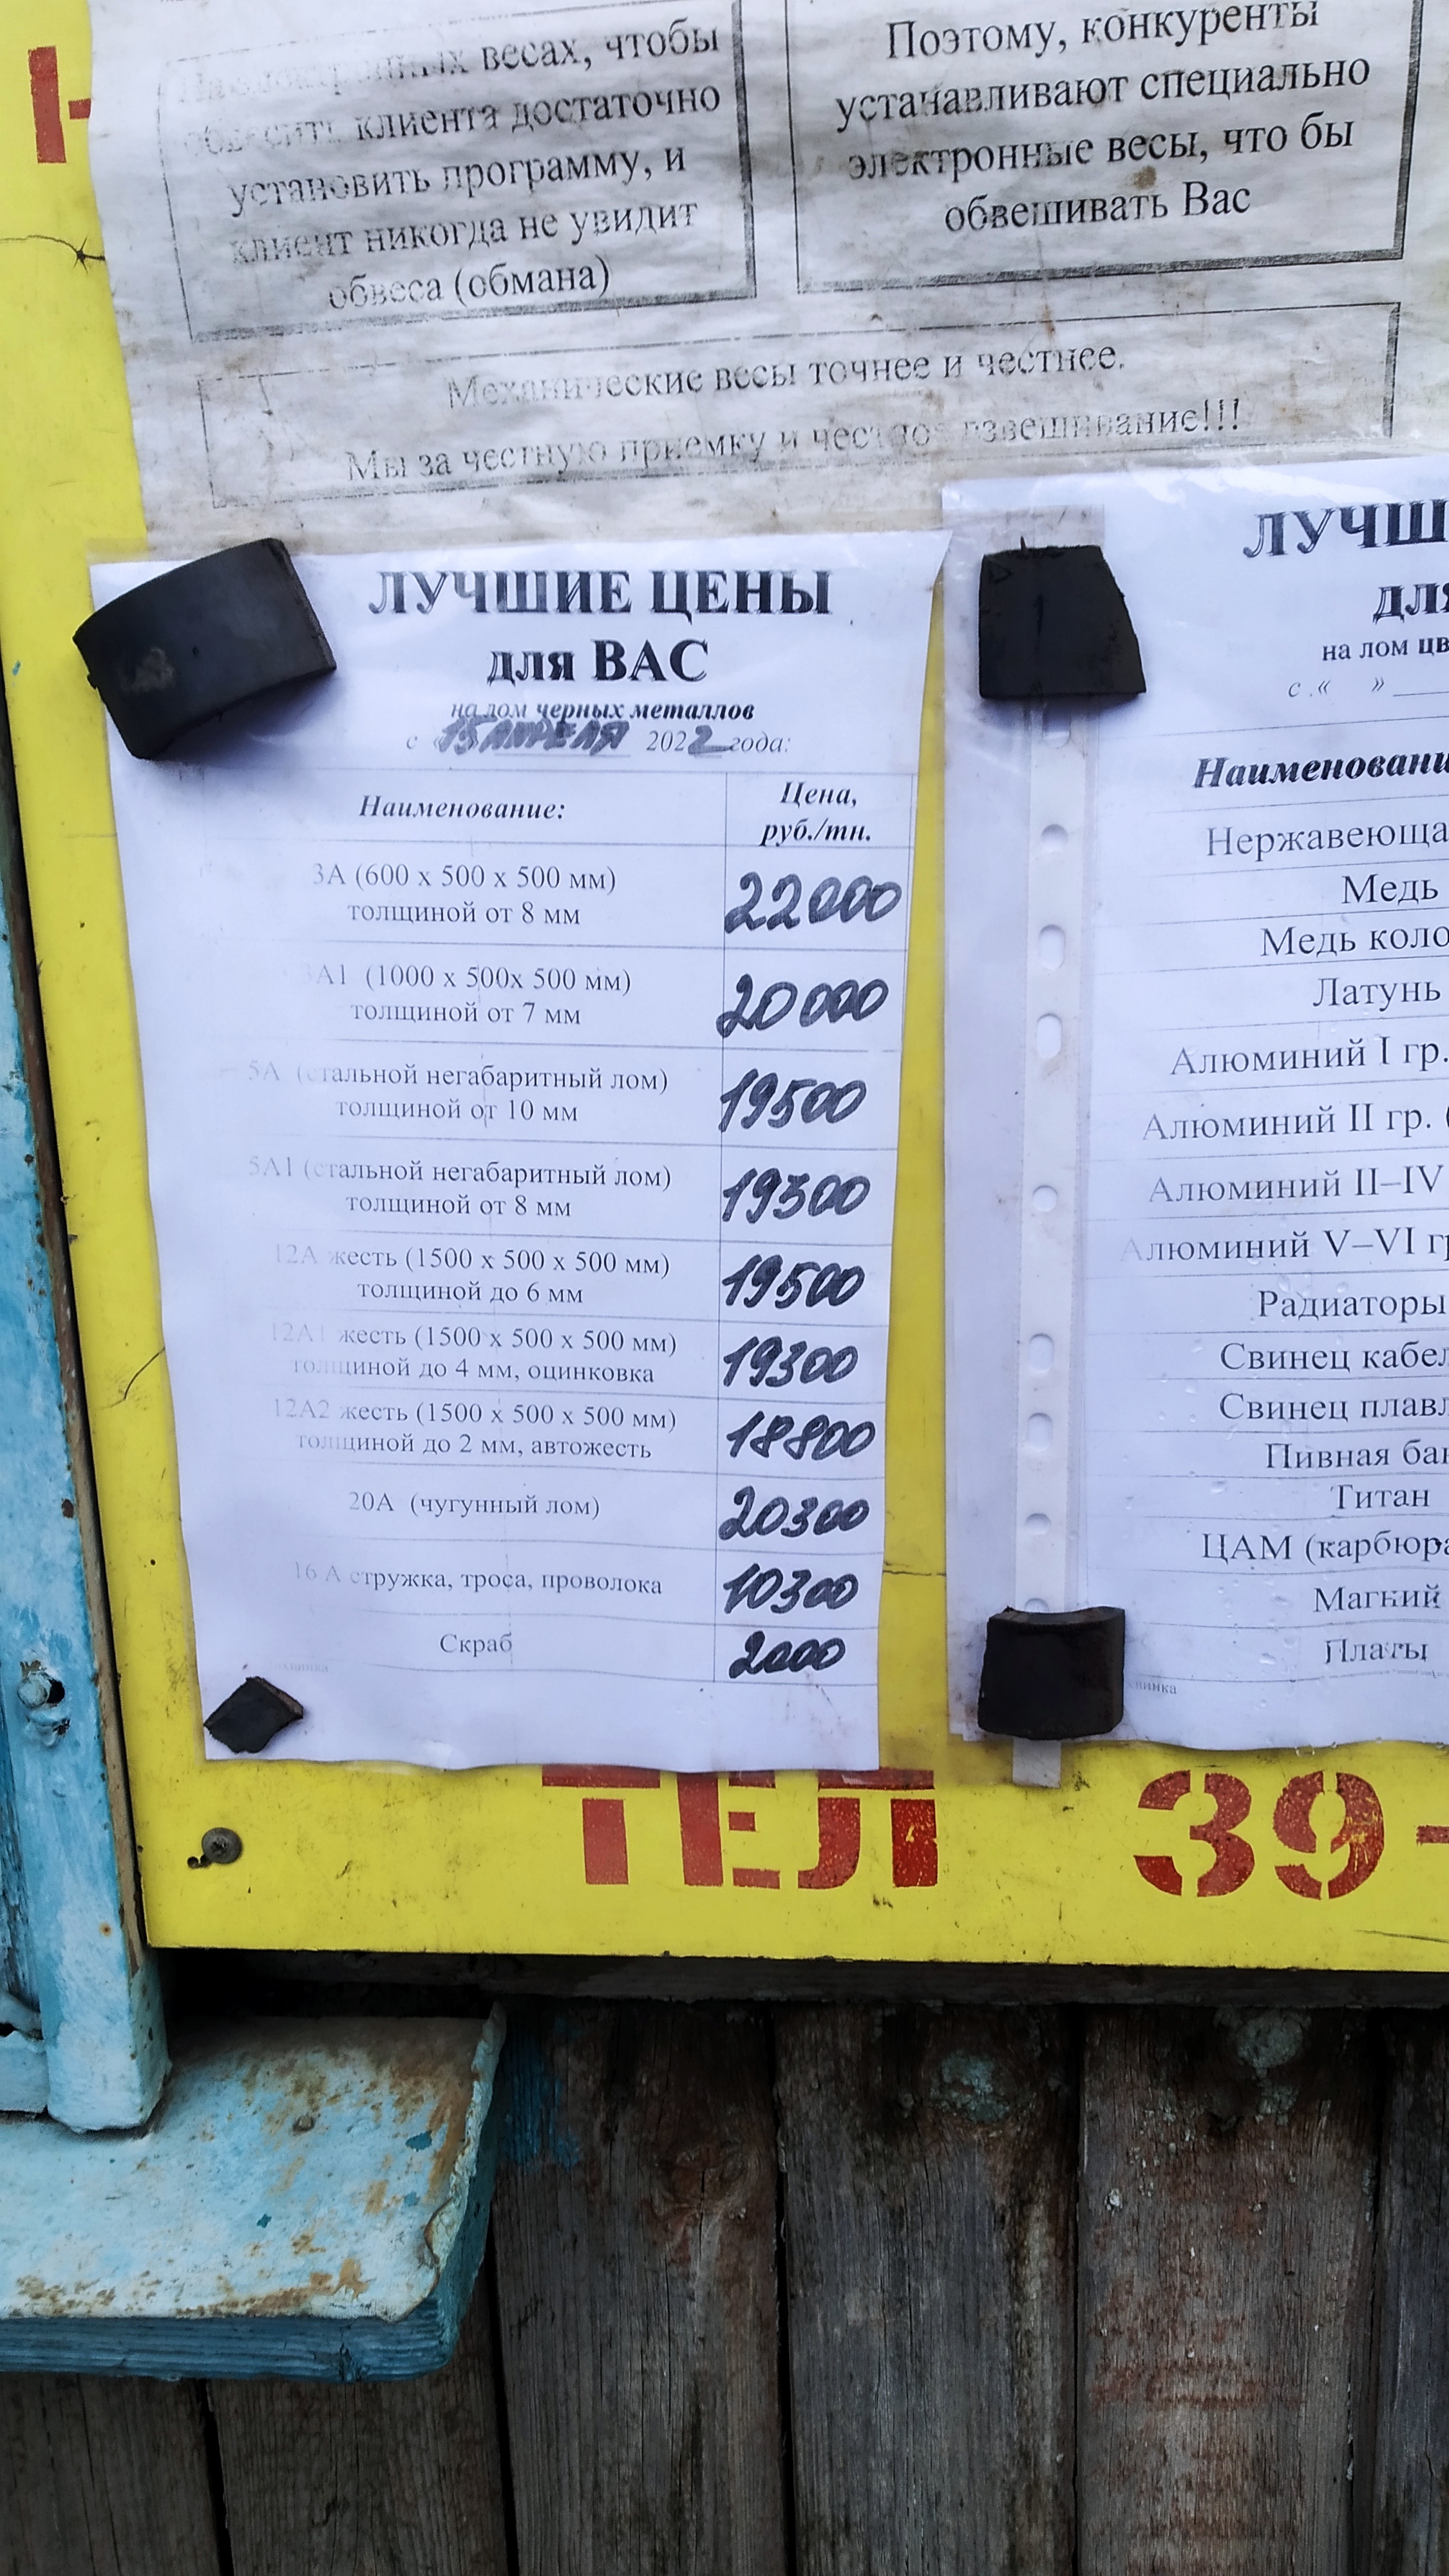 весах, чтобы
клиента достаточно
установить программу, и
клиент никогда не увидит
обвеса (обмана)
Поэтому, конкуренты
устанавливают специально
электронные весы, что бы
обвешивать Вас
Механические весы точнее и честнее.
Мы за честную приемку и честное взвешивание!!!
ЛУЧШИЕ ЦЕНЫ
для ВАС
на лом черных металлов
с «15 АПРЕЛЯ 2022 года:
Наименование: Цена, руб./тн.
3А (600 х 500 х 500 мм)
толщиной от 8 мм 22000
3А1 (1000 х 500х 500 мм)
толщиной от 7 мм 20000
5А (стальной негабаритный лом)
толщиной от 10 мм 19500
5А1 (стальной негабаритный лом)
толщиной от 8 мм 19300
12А жесть (1500 х 500 х 500 мм)
толщиной до 6 мм 19500
12А1 жесть (1500 х 500 х 500 мм)
толщиной до 4 мм, оцинковка 19300
12А2 жесть (1500 х 500 х 500 мм)
толщиной до 2 мм, автожесть 18800
20А (чугунный лом) 20300
16 А стружка, троса, проволока 10300
Скраб 2000
ЛУЧШ
для
на лом цв
с «    »
Наименовани
Нержавеюща
Медь
Медь коло
Латунь
Алюминий I гр.
Алюминий II гр. (
Алюминий II–IV
Алюминий V–VI г
Радиаторы
Свинец кабел
Свинец плавл
Пивная бан
Титан
ЦАМ (карбюра
Магний
Платы
ТЕЛ 39-